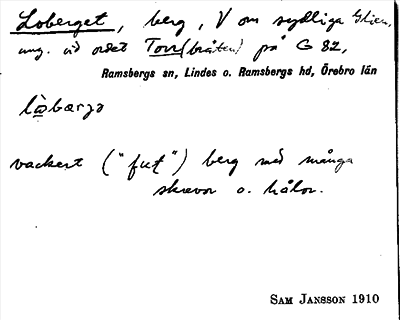 Loberget, berg, V om sydliga Glien,
ung. vid ordet Torr(bråten) på G 82,
Ramsbergs sn, Lindes o. Ramsbergs hd, Örebro län
vackert ("fint") berg med många
skrevor o. hålor.
SAM JANSSON 1910